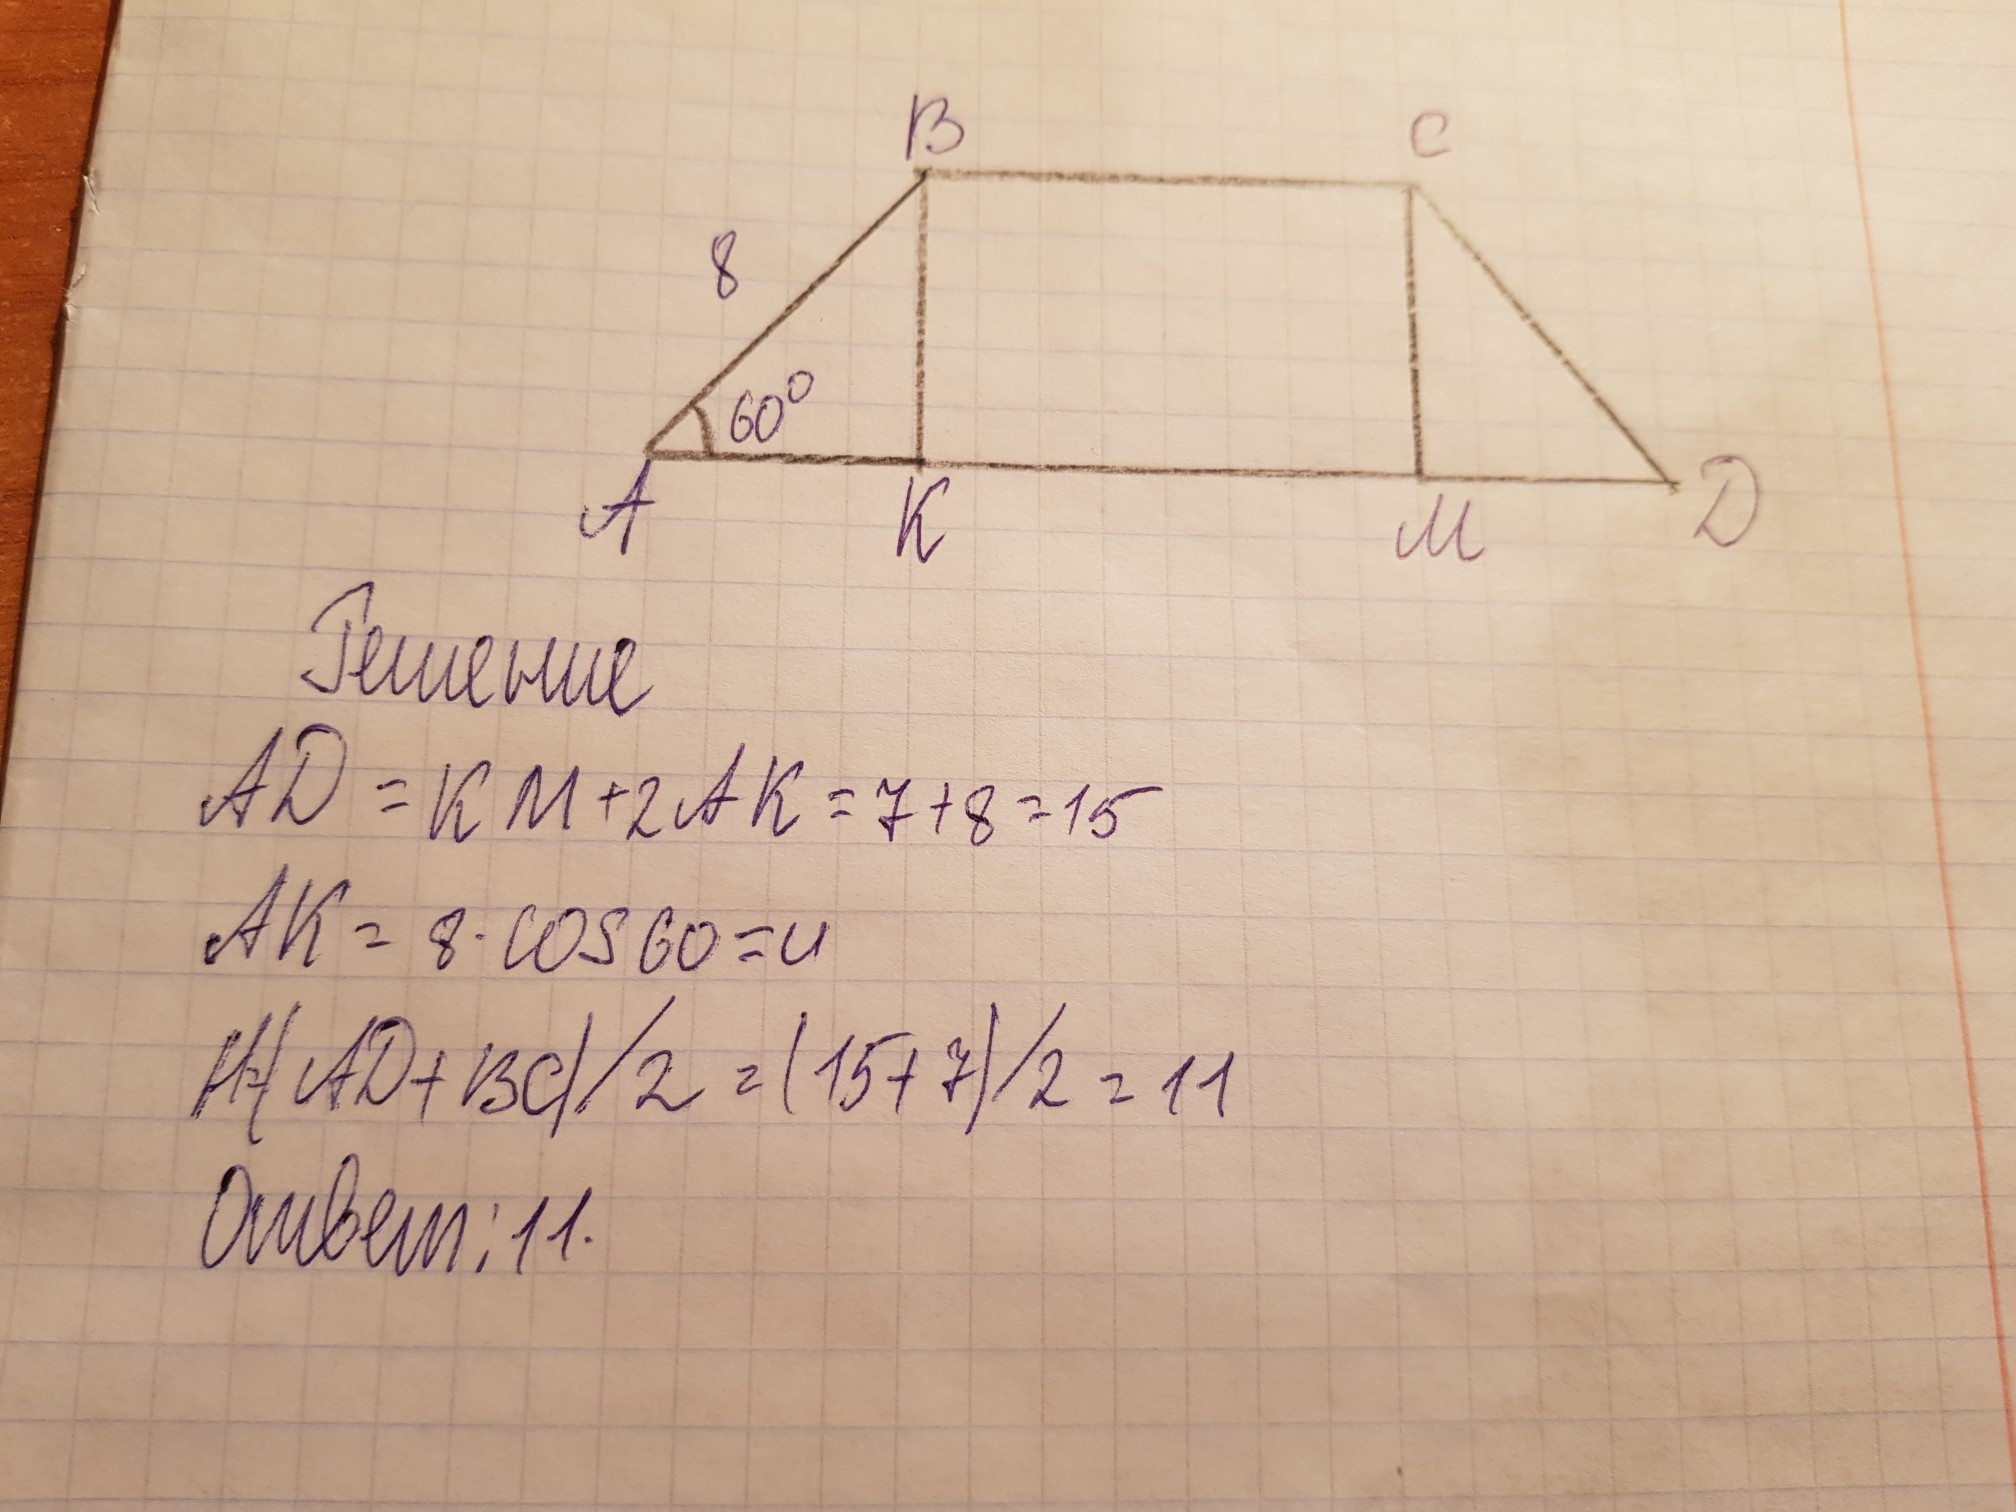 B C
8
60°
A K M D
Решение
AD = KM + 2AK = 7 + 8 = 15
AK = 8 · cos60 = 4
H=(AD+BC)/2 = (15+7)/2 = 11
Ответ: 11.